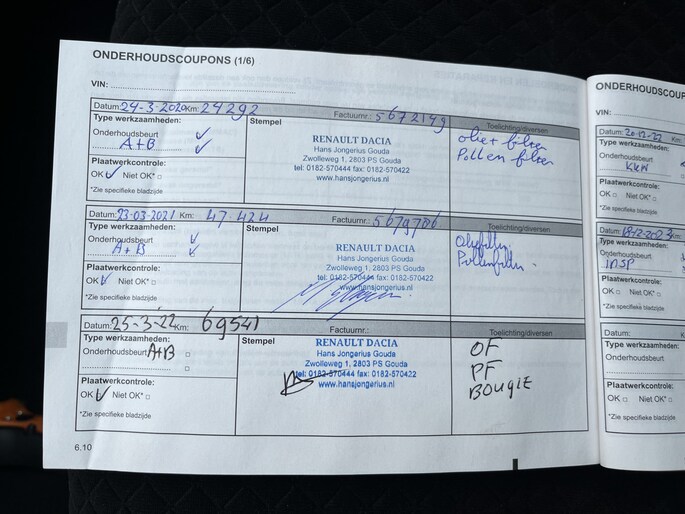 ONDERHOUDSCOUPONS (1/6)
VIN:
Datum: 24-3-2020 Km: 24292 Factuurnr.: 5672149
Type werkzaamheden: Stempel Toelichting/diversen
Onderhoudsbeurt ✓
A+B ✓
RENAULT DACIA
Hans Jongerius Gouda
Zwolleweg 1, 2803 PS Gouda
tel: 0182-570444 fax: 0182-570422
www.hansjongerius.nl
oliefilter
Pollenfilter
Plaatwerkcontrole:
OK ✓ Niet OK* □
*Zie specifieke bladzijde
Datum: 23-03-2021 Km: 47.424 Factuurnr.: 5679786
Type werkzaamheden: Stempel Toelichting/diversen
Onderhoudsbeurt ✓
A+B ✓
RENAULT DACIA
Hans Jongerius Gouda
Zwolleweg 1, 2803 PS Gouda
tel: 0182-570444 fax: 0182-570422
www.hansjongerius.nl
Pollenfilter
Plaatwerkcontrole:
OK ✓ Niet OK* □
*Zie specifieke bladzijde
Datum: 25-3-22 Km: 69541 Factuurnr.:
Type werkzaamheden: Stempel Toelichting/diversen
Onderhoudsbeurt A+B □
□
RENAULT DACIA
Hans Jongerius Gouda
Zwolleweg 1, 2803 PS Gouda
tel: 0182-570444 fax: 0182-570422
www.hansjongerius.nl
OF
PF
BOUGIE
Plaatwerkcontrole:
OK ✓ Niet OK* □
*Zie specifieke bladzijde
6.10
ONDERHOUDSCOUP
VIN:
Datum: 20-12-22 Km:
Type werkzaamheden:
Onderhoudsbeurt
Plaatwerkcontrole:
OK □ Niet OK* □
*Zie specifieke bladzijde
Datum: Km:
Type werkzaamheden:
Onderhoudsbeurt
INSP
Plaatwerkcontrole:
OK □ Niet OK* □
*Zie specifieke bladzijde
Datum: K
Type werkzaamheden:
Onderhoudsbeurt
Plaatwerkcontrole:
OK □ Niet OK* □
*Zie specifieke bladzijde